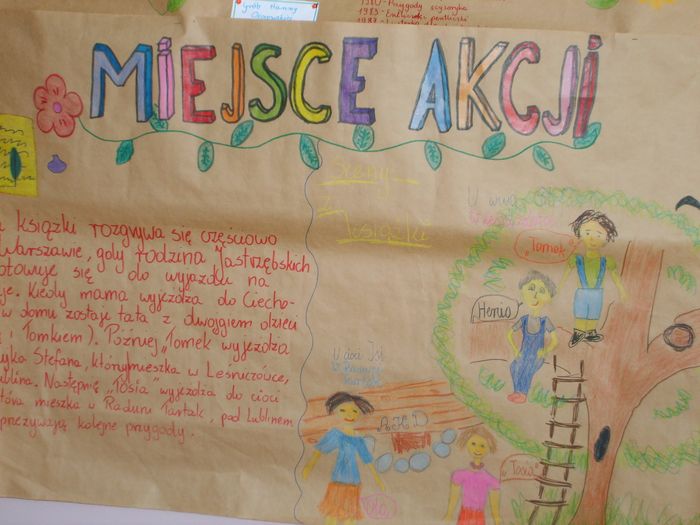 1980 - Przygody
1983 -
1987 -
MIEJSCE AKCJI
Sceny
z
książki
książki rozgrywa się częściowo
Warszawie, gdy rodzina Jastrzębskich
otowuje się do wyjazdu na
je. Kiedy mama wyjeżdża do Ciecho-
w domu zostaje tata z dwojgiem dzieci
i Tomkiem). Później „Tomek wyjeżdża
jka Stefana, którymieszka w Leśniczówce,
ublina. Następnię „Tosia" wyjeżdża do cioci
tóra mieszka w Raduni Tartak, pod Lublinem
przeżywają kolejne przygody.
U wuja
„Tomek"
„Henio"
U cioci Isi
w
Tartak
„Tosia"